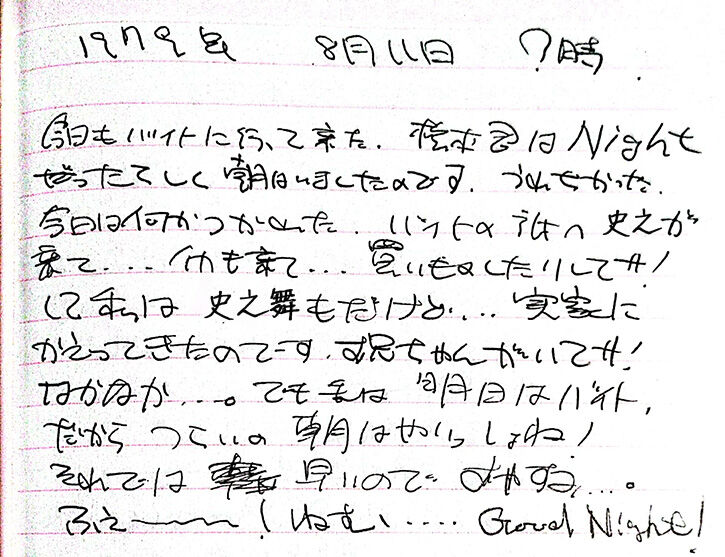 1979年 8月11日 ?晴
今日もバイトに行って来た. はNight
だったらしく朝はいましたのです. うれちかった.
今日は何かつかれた. バイトの 史之が
来て... 何も来て... 買いものしたりしてサ!
して私は 史之舞もだけど.... 実家に
かえってきたのでーす. 兄ちゃんがいてサ!
なかなか...。でも 私は 明日はバイト.
だから つらいの 朝はやいっしょね!
それでは 早いので おやすみ....。
ふえ〜〜〜! ねむい.... Good Night!